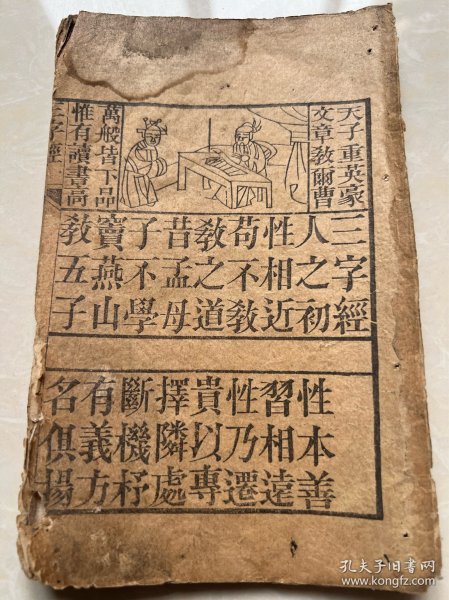 天子重英豪
文章教爾曹
萬般皆下品
惟有讀書高
三字經
三字經
人之初
性本善
性相近
習相遠
苟不教
性乃遷
教之道
貴以專
昔孟母
擇隣處
子不學
斷機杼
竇燕山
有義方
教五子
名俱揚
孔夫子旧书网
www.kongfz.com